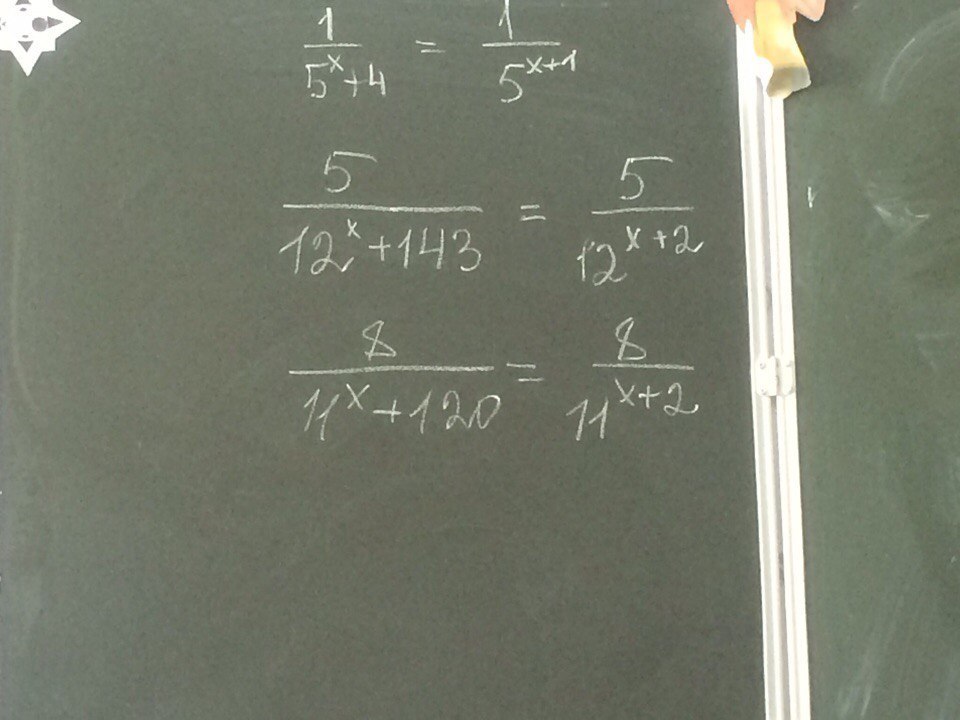 1/(5^x+4) = 1/5^(x+1)
5/(12^x+143) = 5/12^(x+2)
8/(11^x+120) = 8/11^(x+2)